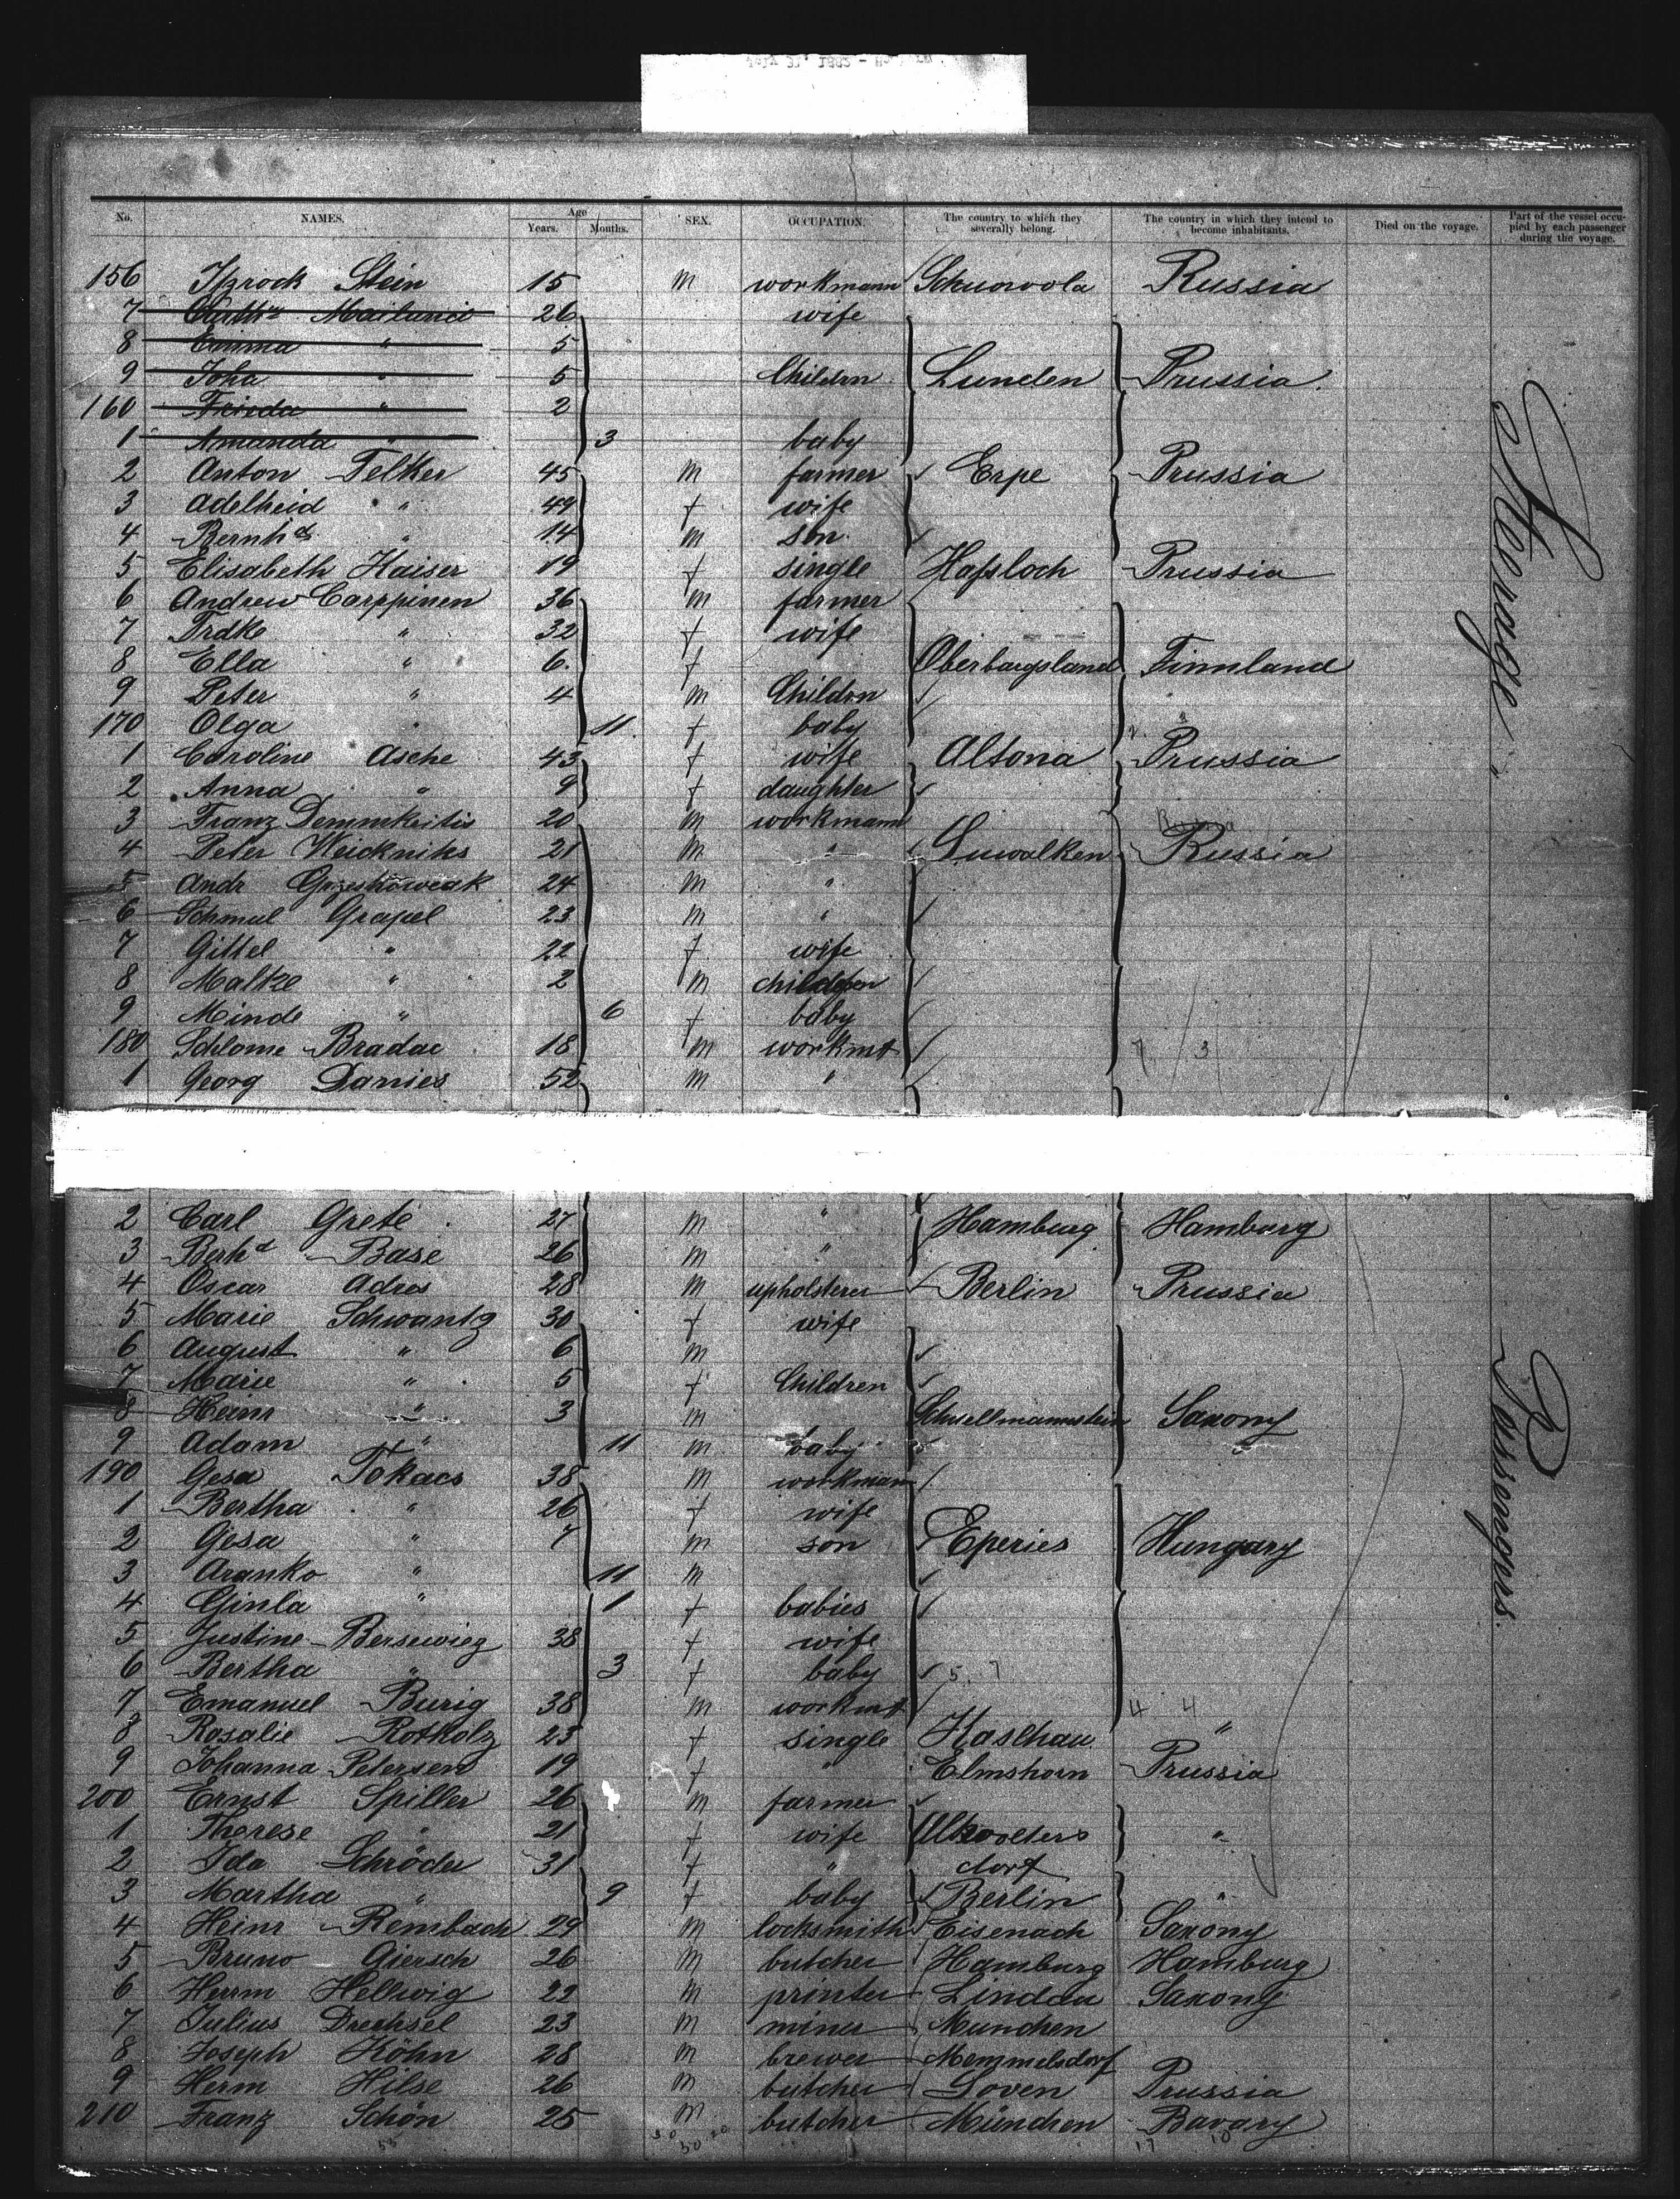 No. NAMES. Age Years. Months. SEX. OCCUPATION. The country to which they severally belong. The country in which they intend to become inhabitants. Died on the voyage. Part of the vessel occupied by each passenger during the voyage.
156 Stein 15 m workmann Russia
7 26 wife
8 Emma " 5
9 Joha " 5 Childrn Lunden Prussia.
160 Frieda " 2
1 Amanda " 3 baby
2 Anton Felker 45 m farmer Erpe Prussia
3 Adelheid " 49 f wife
4 Bernhd " 14 m son
5 Elisabeth Kaiser 19 f single Hassloch Prussia
6 Andrew Carppinen 36 m farmer
7 Brdke " 32 f wife
8 Ella " 6 f Finnland
9 Peter " 4 m Childrn
170 Olga " 11 f baby
1 Caroline Asche 43 f wife Altona Prussia
2 Anna " 9 f daughter
3 Franz 20 m workmann
4 Peter 21 m " Suwalken Russia
5 Andr 24 m "
6 Schmul Grapel 23 m "
7 Gittel " 22 f wife
8 Malke " 2 m children
9 Minde " 6 f baby
180 Schlome Bradac 18 m workmn 7 3
1 Georg Danies 52 m "
2 Carl Grete 27 m " Hamburg Hamburg
3 Berhd Base 26 m "
4 Oscar Adres 28 m upholsterer Berlin Prussia
5 Marie Schwantz 30 f wife
6 August " 6 m
7 Marie " 5 f Children
8 Heinr " 3 m Saxony
9 Adam " 11 m baby
190 Gesa Tokacs 38 m workmann
1 Bertha " 26 f wife
2 Gesa " 7 m son Eperies Hungary
3 Aranko " 11 m
4 Ginla " 1 f babies
5 Justine Bersewicz 38 f wife
6 Bertha " 3 f baby 5 7
7 Emanuel Burig 38 m workmn 4 4
8 Rosalie Rotholz 23 f single Kaschau "
9 Johanna Petersen 19 f " Elmshorn Prussia
200 Ernst Spiller 26 m farmer
1 Therese " 21 f wife "
2 Ida Schröder 31 f " dorf
3 Martha " 9 f baby Berlin "
4 Heinr Rembach 29 m locksmith Eisenach Saxony
5 Bruno Giersch 26 m butcher Hamburg Hamburg
6 Herrm Hellwig 22 m printer Lindau Saxony
7 Julius Drechsel 23 m miner Munchen
8 Joseph Köhn 28 m brewer Memmelsdorf
9 Herm Hilse 26 m butcher Loven Prussia
210 Franz Schön 25 m butcher München Bavary
Steerage
Passengers.